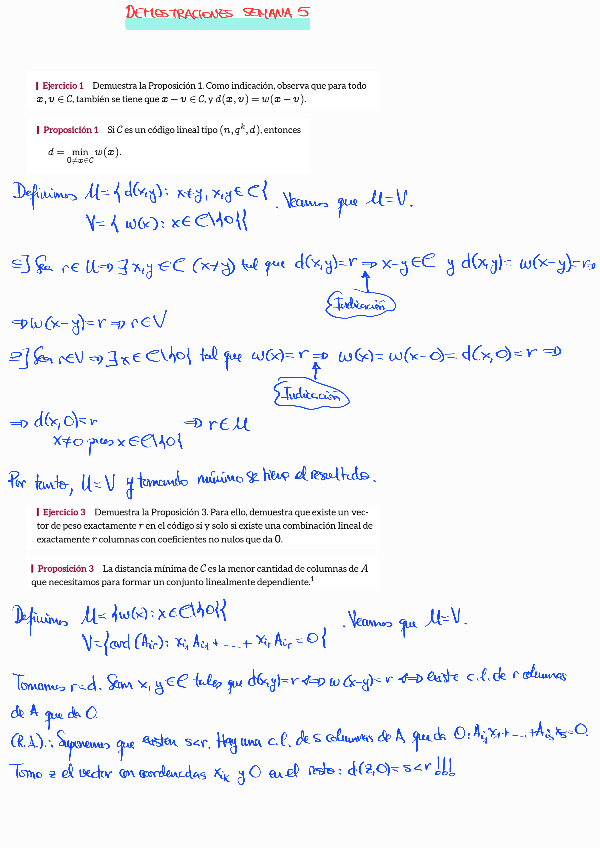 DEMOSTRACIONES SEMANA 5
Ejercicio 1 Demuestra la Proposición 1. Como indicación, observa que para todo
x, v ∈ C, también se tiene que x − v ∈ C, y d(x, v) = w(x − v).
Proposición 1 Si C es un código lineal tipo (n, q^k, d), entonces
d = min w(x).
0≠x∈C
Definimos U = { d(x,y): x≠y, x,y ∈ C }
V = { w(x): x ∈ C\{0}} . Veamos que U=V.
⊆] Sea r ∈ U ⇒ ∃ x,y ∈ C (x≠y) tal que d(x,y)=r ⇒ x-y ∈ C y d(x,y)= w(x-y)=r ⇒
Indicación
⇒ w(x-y)=r ⇒ r ∈ V
⊇] Sea r ∈ V ⇒ ∃ x ∈ C\{0} tal que w(x)=r ⇒ w(x)= w(x-0)= d(x,0)=r ⇒
Indicación
⇒ d(x,0)=r ⇒ r ∈ U
x≠0 pues x ∈ C\{0}
Por tanto, U=V y tomando mínimo se tiene el resultado.
Ejercicio 3 Demuestra la Proposición 3. Para ello, demuestra que existe un vec-
tor de peso exactamente r en el código si y solo si existe una combinación lineal de
exactamente r columnas con coeficientes no nulos que da 0.
Proposición 3 La distancia mínima de C es la menor cantidad de columnas de A
que necesitamos para formar un conjunto linealmente dependiente.¹
Definimos U = {w(x): x ∈ C\{0}}
V = {card (A_ir): x_i1 A_i1 + ... + x_ir A_ir = 0} . Veamos que U=V.
Tomamos r=d. Sean x,y ∈ C tales que d(x,y)=r ⇔ w(x-y)=r ⇔ existe c.l. de r columnas
de A que da 0.
(R.A.): Suponemos que existen s<r. Hay una c.l. de s columnas de A que da 0: A_i1 x_1 + ... + A_is x_s=0.
Tomo z el vector con coordenadas x_ik y 0 en el resto: d(z,0)=s<r !!!